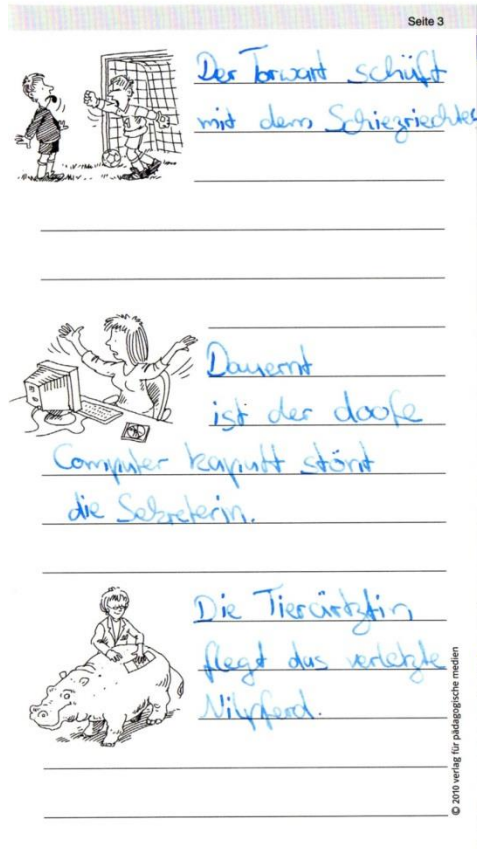 Seite 3
Der Torwart schüft
mit dem Schiezriechter
Dauernt
ist der doofe
Computer kaputt stönt
die Sekreterin.
Die Tierärtztin
flegt das verletzte
Nilpferd.
© 2010 verlag für pädagogische medien